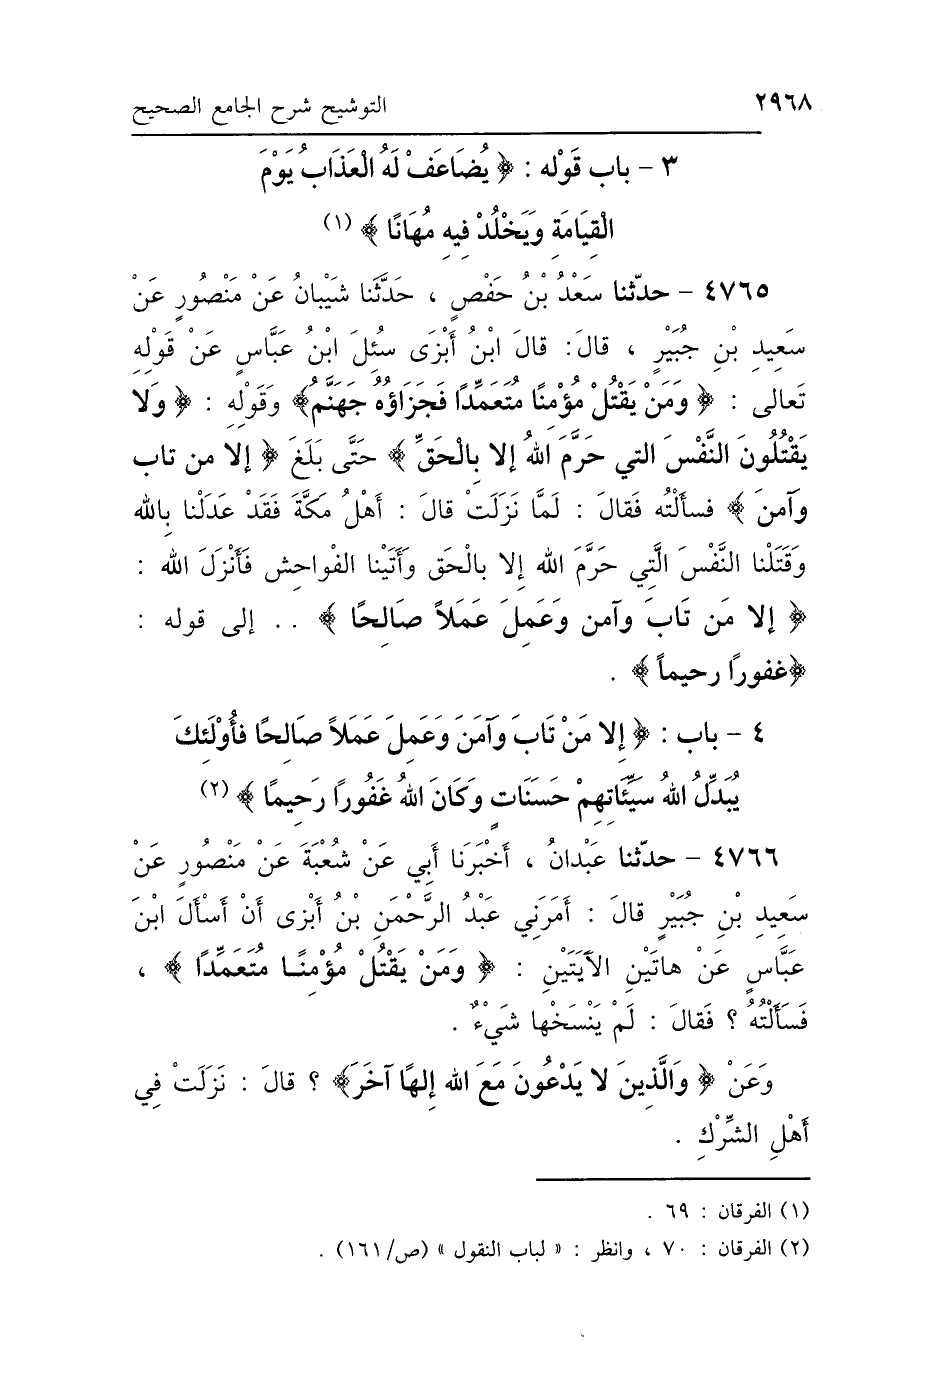 ٢٩٦٨ التوشيح شرح الجامع الصحيح
٣ - باب قَوْله : ﴿ يُضَاعَفْ لَهُ الْعَذَابُ يَوْمَ
الْقِيَامَةِ وَيَخْلُدْ فِيهِ مُهَانًا ﴾ (١)
٤٧٦٥ - حدّثنا سَعْدُ بْنُ حَفْصٍ ، حَدَّثَنا شَيْبانُ عَنْ مَنْصُورٍ عَنْ
سَعِيدِ بْنِ جُبَيْرٍ ، قالَ: قالَ ابْنُ أَبْزَى سُئِلَ ابْنُ عَبَّاسٍ عَنْ قَوْلِهِ
تَعالى : ﴿ وَمَنْ يَقْتُلْ مُؤْمِنًا مُتَعَمِّدًا فَجَزَاؤُه جَهَنَّمُ﴾ وَقَوْلِهِ : ﴿ وَلا
يَقْتُلُونَ النَّفْسَ التي حَرَّمَ اللهُ إلا بِالْحَقِّ ﴾ حَتَّى بَلَغَ ﴿ إلا من تاب
وآمنَ ﴾ فسأَلْتُه فَقالَ : لَمَّا نَزَلَتْ قالَ : أَهْلُ مَكَّةَ فَقَدْ عَدَلْنا بِالله
وَقَتَلْنا النَّفْسَ الَّتِي حَرَّمَ الله إلا بالْحَق وأَتَيْنا الفْواحِش فَأَنْزَلَ الله :
﴿ إلا مَن تَابَ وآمن وعَمِلَ عَمَلاً صَالِحًا ﴾ .. إلى قوله :
﴿غفورًا رحيماً﴾ .
٤ - باب : ﴿ إِلا مَنْ تَابَ وَآمَنَ وَعَمِلَ عَمَلاً صَالِحًا فأُوْلَئِكَ
يُبَدِّلُ اللهُ سَيِّئَاتِهِمْ حَسَنَاتٍ وَكَانَ اللهُ غَفُورًا رَحِيمًا ﴾ (٢)
٤٧٦٦ - حدّثنا عَبْدانُ ، أَخْبَرَنا أبي عَنْ شُعْبَةَ عَنْ مَنْصُورٍ عَنْ
سَعِيدِ بْنِ جُبَيْرٍ قالَ : أَمَرَنِي عَبْدُ الرَّحْمَنِ بْنُ أَبْزى أَنْ أَسْأَلَ ابْنَ
عَبَّاسٍ عَنْ هاتَيْنِ الآيَتَيْنِ : ﴿ وَمَنْ يَقْتُلْ مُؤْمِنًا مُتَعَمِّدًا ﴾ ،
فَسَأَلْتُهُ ؟ فَقالَ : لَمْ يَنْسَخْها شَيْءٌ .
وَعَنْ ﴿ وَالَّذِينَ لا يَدْعُونَ مَعَ الله إلهًا آخَرَ﴾ ؟ قالَ : نَزَلَتْ فِي
أَهْلِ الشِّرْكِ .
(١) الفرقان : ٦٩ .
(٢) الفرقان : ٧٠ ، وانظر : « لباب النقول » (ص/١٦١) .